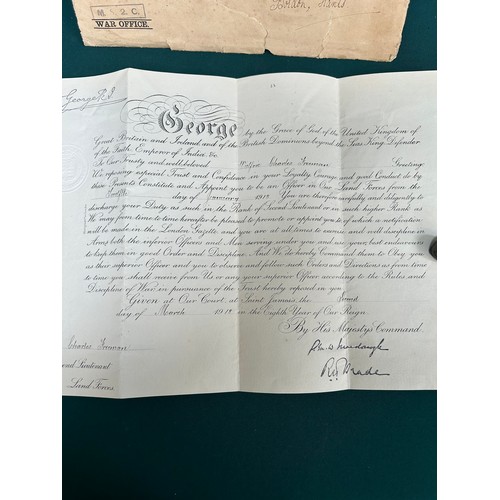 M 2 C.
WAR OFFICE.
Bordon, Hants
George R.I.
George by the Grace of God of the United Kingdom of
Great Britain and Ireland and of the British Dominions beyond the Seas King Defender
of the Faith, Emperor of India, &c.
To Our Trusty and well beloved Charles Greeting
We reposing especial Trust and Confidence in your Loyalty Courage and good Conduct do by
these Presents Constitute and Appoint you to be an Officer in Our Land Forces from the
day of You are therefore carefully and diligently to
discharge your Duty as such in the Rank of Second Lieutenant or in such higher Rank as
We may from time to time hereafter be pleased to promote or appoint you to of which a notification
will be made in the London Gazette and you are at all times to exercise and well discipline in
Arms both the inferior Officers and Men serving under you and use your best endeavours
to keep them in good Order and Discipline. And We do hereby Command them to Obey you
as their superior Officer and you to observe and follow such Orders and Directions as from time
to time you shall receive from Us or any your superior Officer according to the Rules and
Discipline of War in pursuance of the Trust hereby reposed in you.
Given at Our Court at Saint James's the
day of March in the Eighth Year of Our Reign
By His Majesty's Command.
Charles
Second Lieutenant
Land Forces.